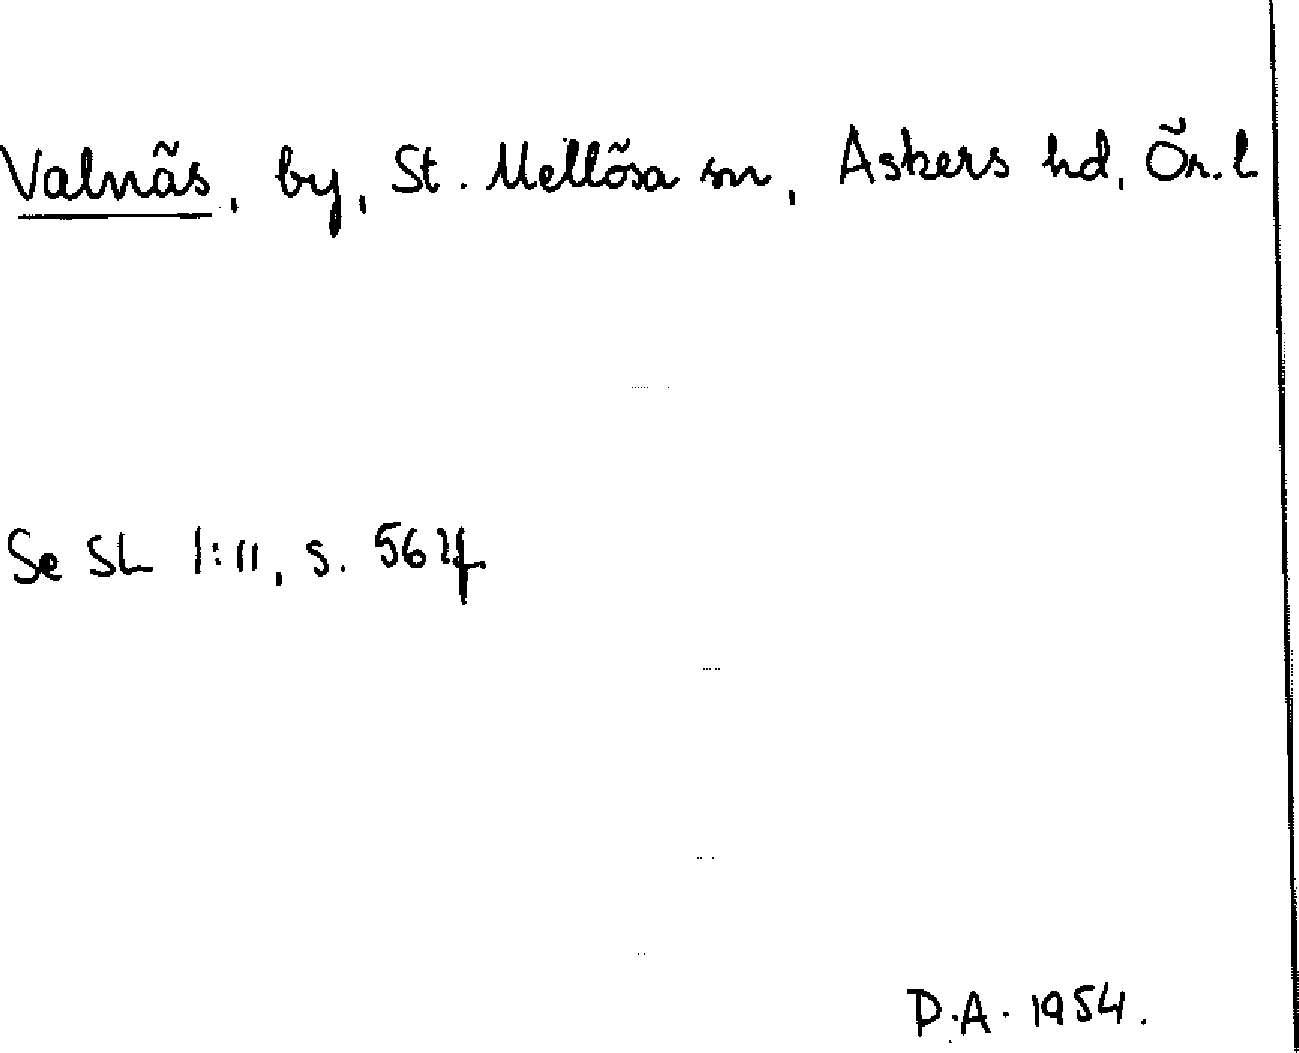 Valnäs, by, St. Mellösa sn, Askers hd, Ör. l
Se SL 1:11, s. 561f.
D.A. 1954.